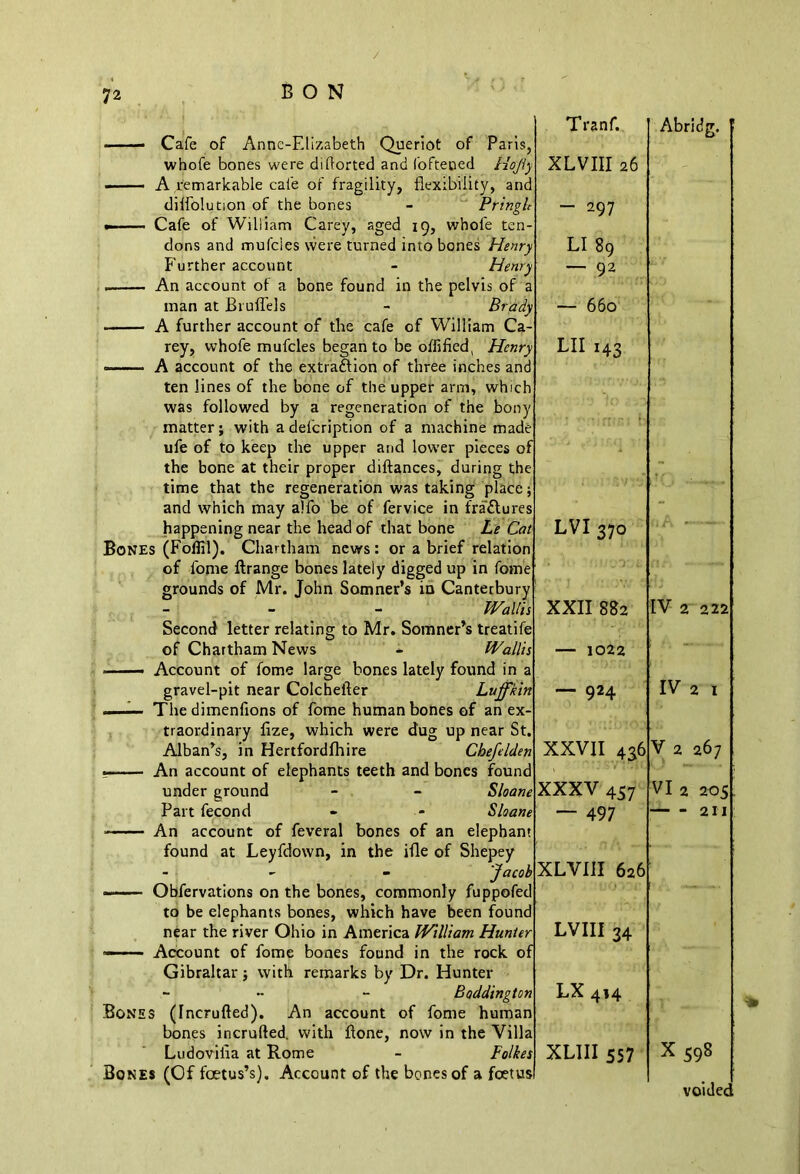 72 BON
Tranf. Abridg.
—— Cafe of Anne-Elizabeth Queriot of Paris,
whofe bones were diftorted and foftened Hofty XLVIII 26
—— A remarkable cafe of fragility, flexibility, and
diffolution of the bones - Pringle — 297
—— Cafe of William Carey, aged 19, whofe ten-
dons and mufcles were turned into bones Henry LI 89
Further account - Henry — 92
—— An account of a bone found in the pelvis of a
man at Bruffels - Brady — 660
—— A further account of the cafe of William Ca-
rey, whofe mufcles began to be offified, Henry LII 143
—— A account of the extraction of three inches and
ten lines of the bone of the upper arm, which
was followed by a regeneration of the bony
matter; with a defcription of a machine made
ufe of to keep the upper and lower pieces of
the bone at their proper diftances, during the
time that the regeneration was taking place;
and which may alfo be of fervice in fractures
happening near the head of that bone Le Cat LVI 370
BONES (Foffil). Chartham news: or a brief relation
of fome ftrange bones lately digged up in fome
grounds of Mr. John Somner's in Canterbury
- - - Wallis XXII 882 IV 2 222
Second letter relating to Mr. Somner's treatife
of Chartham News - Wallis — 1022
—— Account of fome large bones lately found in a
gravel-pit near Colchefter Luffkin — 924 IV 2 1
—— The dimenfions of fome human bones of an ex-
traordinary fize, which were dug up near St.
Alban's, in Hertfordfhire Chefelden XXVII 436 V 2 267
—— An account of elephants teeth and bones found
under ground - - Sloane XXXV 457 VI 2 205
Part fecond - - Sloane — 497 — - 211
—— An account of feveral bones of an elephant
found at Leyfdown, in the ifle of Shepey
- - - Jacob XLVIII 626
—— Obfervations on the bones, commonly fuppofed
to be elephants bones, which have been found
near the river Ohio in America William Hunter LVIII 34
—— Account of fome bones found in the rock of
Gibraltar; with remarks by Dr. Hunter
- - - Boddington LX 414
BONES (Incrufted). An account of fome human
bones incrufted with ftone, now in the Villa
Ludovifia at Rome - Folkes XLIII 557 X 598
BONES (Of fœtus's). Account of the bones of a fœtus
voided